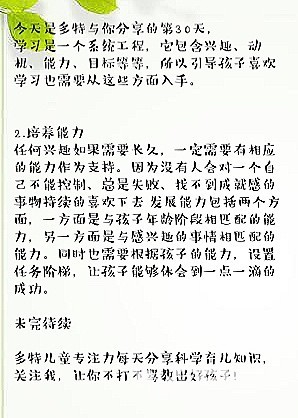 今天是多特与你分享的第30天,
学习是一个系统工程，它包含兴趣、动
机、能力、目标等等，所以引导孩子喜欢
学习也需要从这些方面入手。
2.培养能力
任何兴趣如果需要长久，一定需要有相应
的能力作为支持。因为没有人会对一个自
己不能控制、总是失败、找不到成就感的
事物持续的喜欢下去 发展能力包括两个方
面，一方面是与孩子年龄阶段相匹配的能
力，另一方面是与感兴趣的事情相匹配的
能力。同时也需要根据孩子的能力，设置
任务阶梯，让孩子能够体会到一点一滴的
成功。
未完待续
多特儿童专注力每天分享科学育儿知识，
关注我，让你不打不骂教出好孩子！